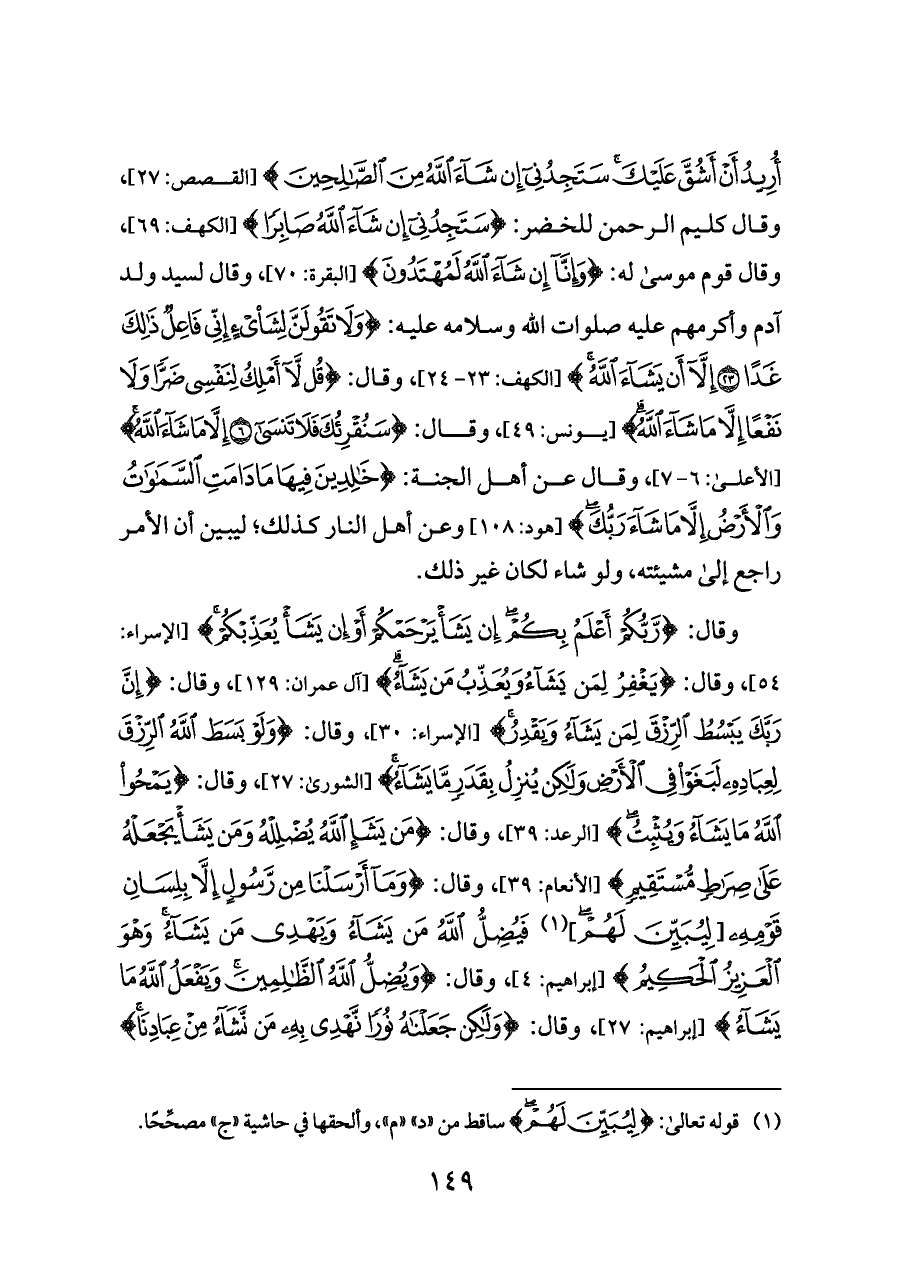 أُرِيدُ أَنْ أَشُقَّ عَلَيْكَ ۚ سَتَجِدُنِىٓ إِن شَآءَ ٱللَّهُ مِنَ ٱلصَّٰلِحِينَ ﴾ [القصص: ٢٧]،
وقال كليم الرحمن للخضر: ﴿سَتَجِدُنِىٓ إِن شَآءَ ٱللَّهُ صَابِرًا ﴾ [الكهف: ٦٩]،
وقال قوم موسىٰ له: ﴿وَإِنَّآ إِن شَآءَ ٱللَّهُ لَمُهْتَدُونَ ﴾ [البقرة: ٧٠]، وقال لسيد ولد
آدم وأكرمهم عليه صلوات الله وسلامه عليه: ﴿وَلَا تَقُولَنَّ لِشَا۟ىْءٍ إِنِّى فَاعِلٌ ذَٰلِكَ
غَدًا ٢٣ إِلَّآ أَن يَشَآءَ ٱللَّهُ ۚ ﴾ [الكهف: ٢٣-٢٤]، وقال: ﴿قُل لَّآ أَمْلِكُ لِنَفْسِى ضَرًّا وَلَا
نَفْعًا إِلَّا مَا شَآءَ ٱللَّهُ ۗ﴾ [يونس: ٤٩]، وقال: ﴿سَنُقْرِئُكَ فَلَا تَنسَىٰٓ ٦ إِلَّا مَا شَآءَ ٱللَّهُ ۚ﴾
[الأعلىٰ: ٦-٧]، وقال عن أهل الجنة: ﴿خَٰلِدِينَ فِيهَا مَا دَامَتِ ٱلسَّمَٰوَٰتُ
وَٱلْأَرْضُ إِلَّا مَا شَآءَ رَبُّكَ ۖ ﴾ [هود: ١٠٨] وعن أهل النار كذلك؛ ليبين أن الأمر
راجع إلىٰ مشيئته، ولو شاء لكان غير ذلك.
وقال: ﴿رَّبُّكُمْ أَعْلَمُ بِكُمْ ۖ إِن يَشَأْ يَرْحَمْكُمْ أَوْ إِن يَشَأْ يُعَذِّبْكُمْ ۚ﴾ [الإسراء:
٥٤]، وقال: ﴿يَغْفِرُ لِمَن يَشَآءُ وَيُعَذِّبُ مَن يَشَآءُ ۗ﴾ [آل عمران: ١٢٩]، وقال: ﴿إِنَّ
رَبَّكَ يَبْسُطُ ٱلرِّزْقَ لِمَن يَشَآءُ وَيَقْدِرُ ۚ﴾ [الإسراء: ٣٠]، وقال: ﴿وَلَوْ بَسَطَ ٱللَّهُ ٱلرِّزْقَ
لِعِبَادِهِۦ لَبَغَوْا۟ فِى ٱلْأَرْضِ وَلَٰكِن يُنَزِّلُ بِقَدَرٍ مَّا يَشَآءُ ۚ﴾ [الشورىٰ: ٢٧]، وقال: ﴿يَمْحُوا۟
ٱللَّهُ مَا يَشَآءُ وَيُثْبِتُ ۖ ﴾ [الرعد: ٣٩]، وقال: ﴿مَن يَشَإِ ٱللَّهُ يُضْلِلْهُ وَمَن يَشَأْ يَجْعَلْهُ
عَلَىٰ صِرَٰطٍ مُّسْتَقِيمٍ﴾ [الأنعام: ٣٩]، وقال: ﴿وَمَآ أَرْسَلْنَا مِن رَّسُولٍ إِلَّا بِلِسَانِ
قَوْمِهِۦ [لِيُبَيِّنَ لَهُمْ ۖ](١) فَيُضِلُّ ٱللَّهُ مَن يَشَآءُ وَيَهْدِى مَن يَشَآءُ ۚ وَهُوَ
ٱلْعَزِيزُ ٱلْحَكِيمُ ﴾ [إبراهيم: ٤]، وقال: ﴿وَيُضِلُّ ٱللَّهُ ٱلظَّٰلِمِينَ ۚ وَيَفْعَلُ ٱللَّهُ مَا
يَشَآءُ ﴾ [إبراهيم: ٢٧]، وقال: ﴿وَلَٰكِن جَعَلْنَٰهُ نُورًا نَّهْدِى بِهِۦ مَن نَّشَآءُ مِنْ عِبَادِنَا ۚ﴾
(١) قوله تعالىٰ: ﴿لِيُبَيِّنَ لَهُمْ ۖ﴾ ساقط من «د» «م»، وألحقها في حاشية «ج» مصحِّحًا.
١٤٩